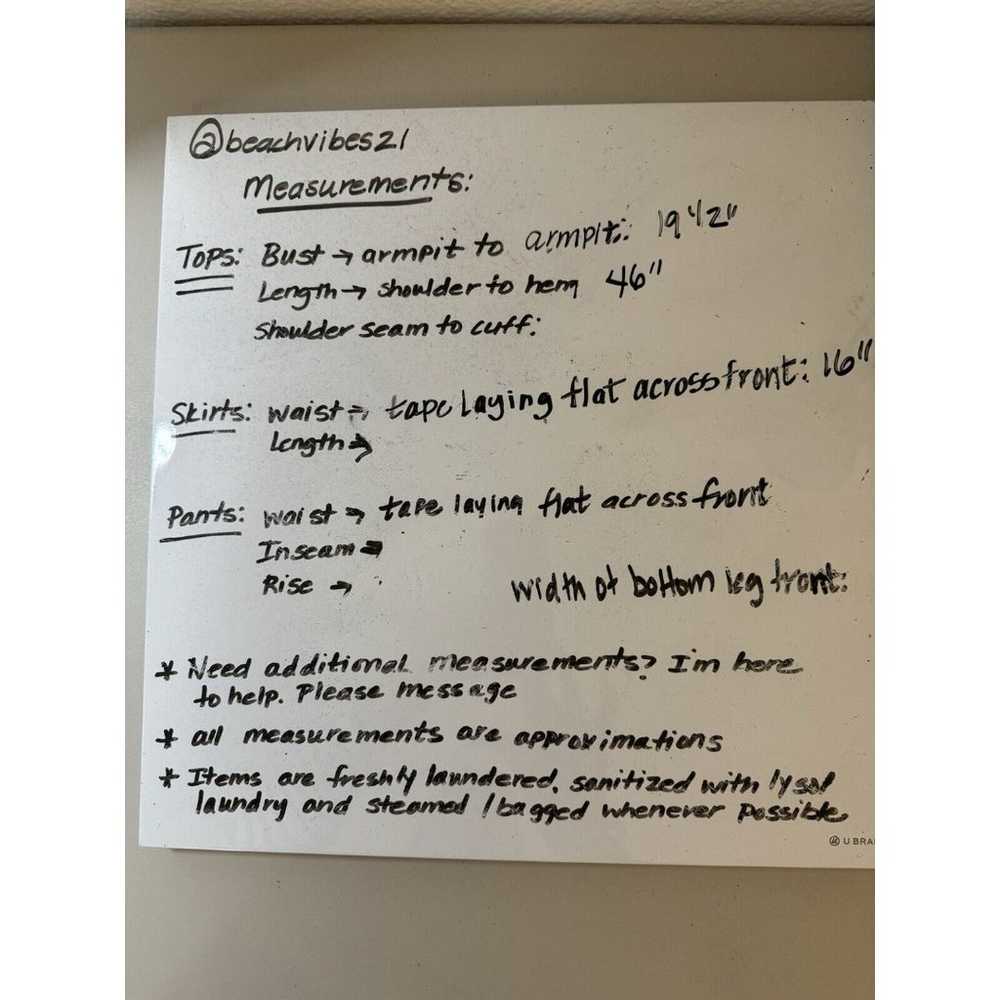 @beachvibes21
Measurements:
Tops: Bust → armpit to armpit: 19 1/2"
Length → shoulder to hem 46"
Shoulder seam to cuff:
Skirts: waist → tape laying flat across front: 16"
Length →
Pants: waist → tape laying flat across front
Inseam →
Rise → width of bottom leg front:
* Need additional measurements? I'm here
to help. Please message
* all measurements are approximations
* Items are freshly laundered, sanitized with lysol
laundry and steamed / bagged whenever possible.
U BRA